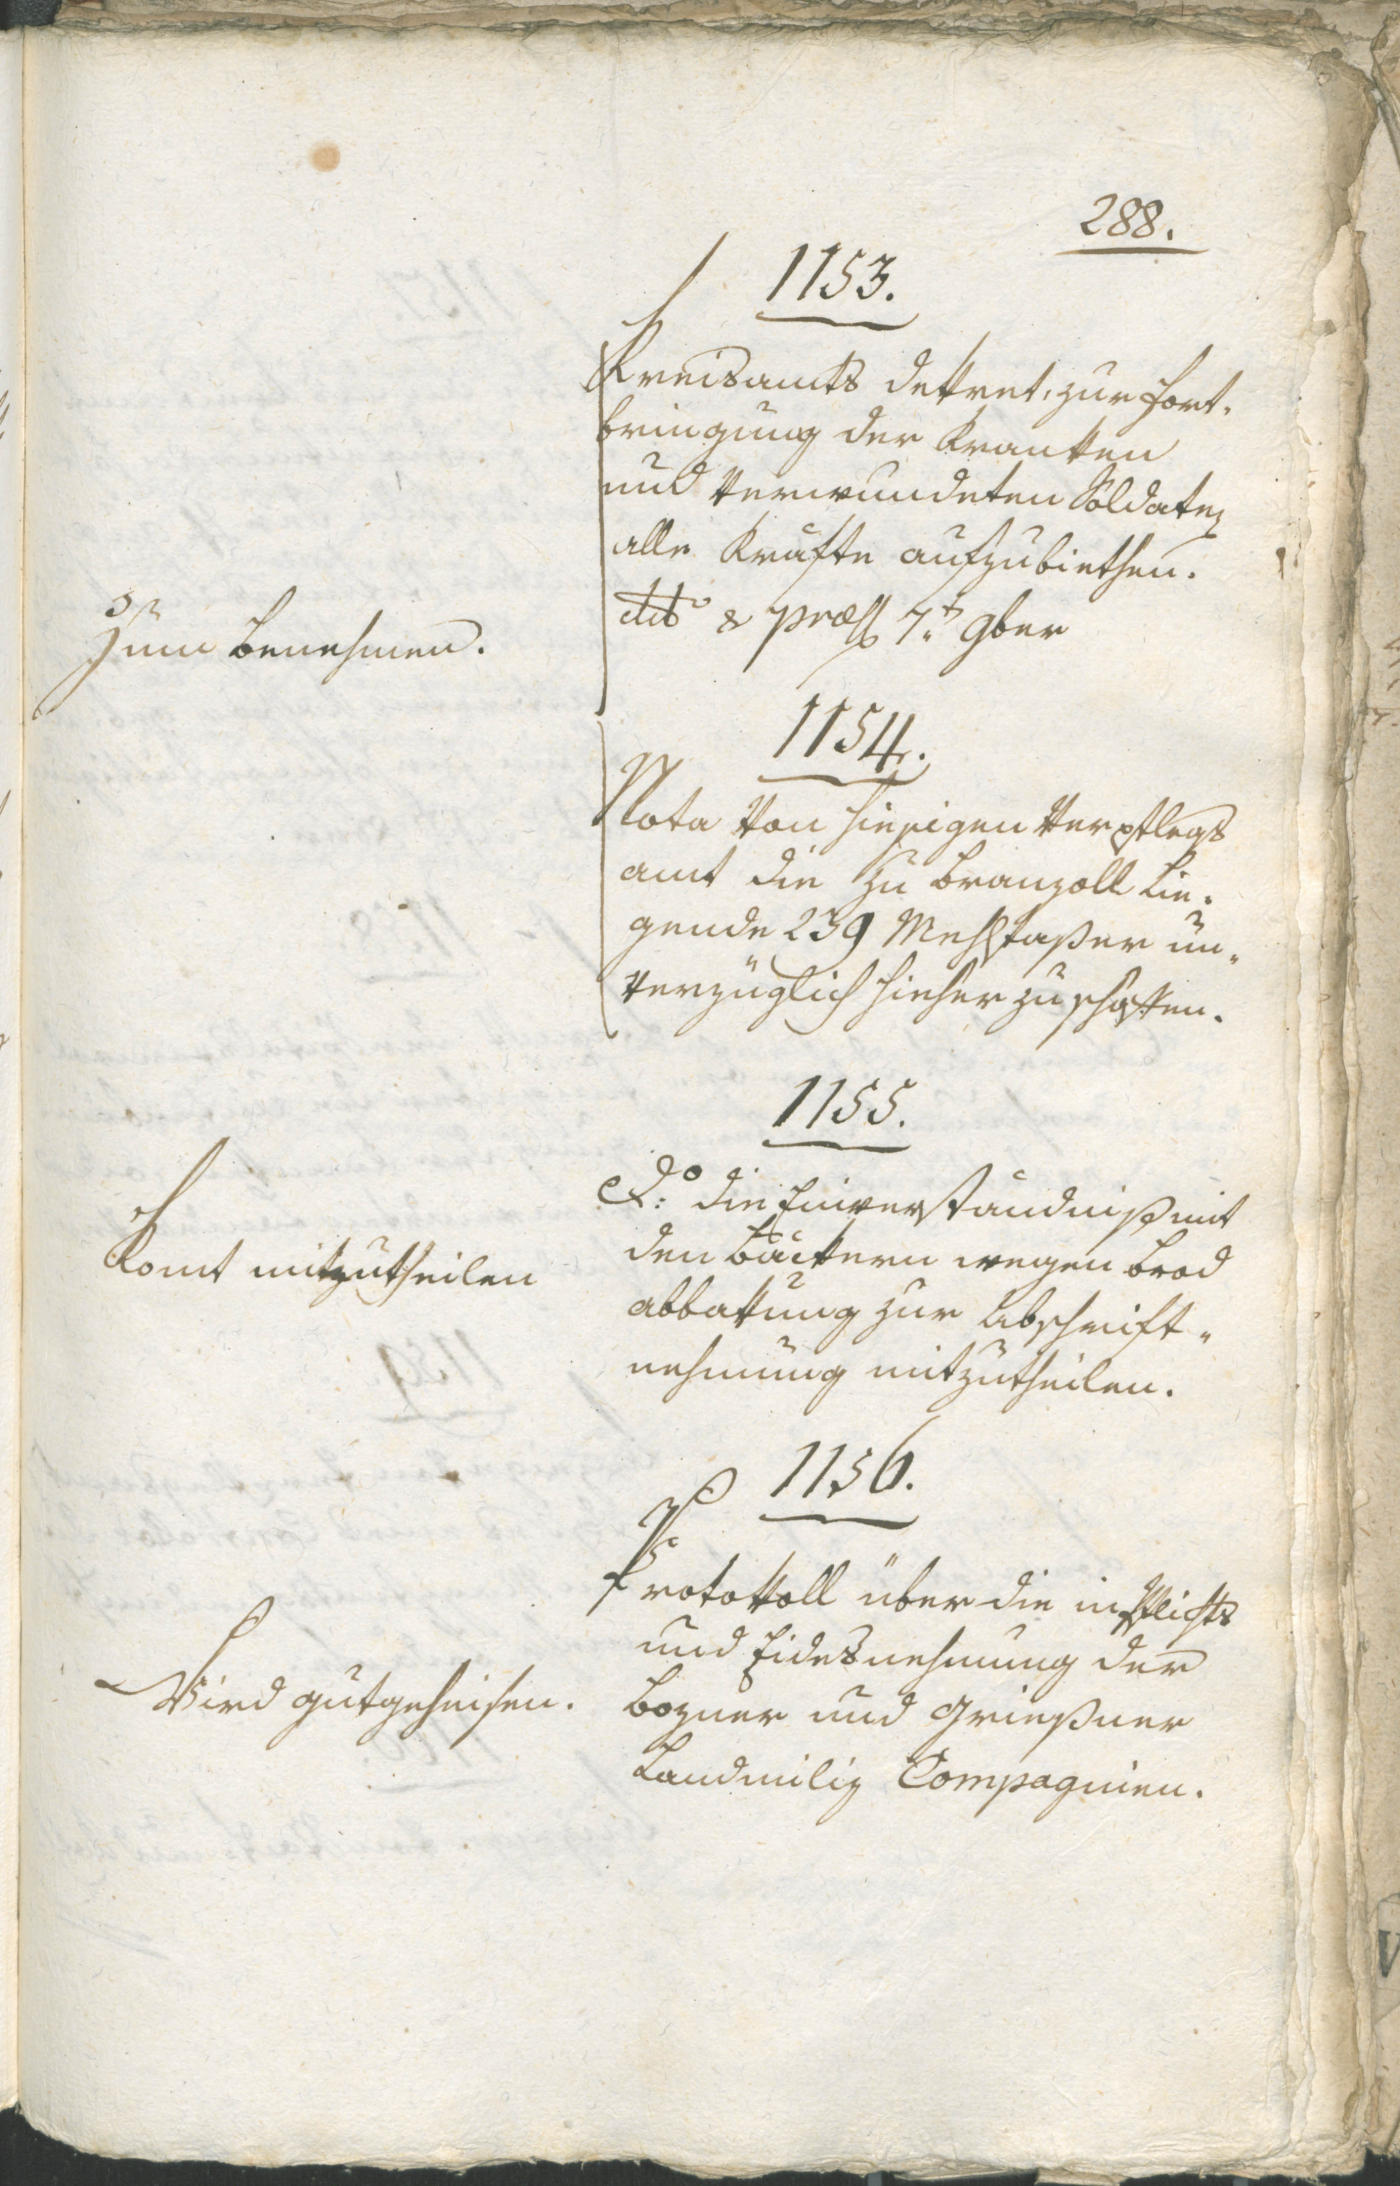 288.
1153.
Kreisamts Dekret, zur Fort-
bringung der Kranken
und verwundeten Soldaten
alle Kräfte aufzubiethen.
dtto & præs 7.t 9ber
Zum Benehmen.
1154.
Nota von hiesigen Verpflegs
amt die zu Branzoll lie-
gende 239 Mehlfaßer un-
verzüglich hieher zu schaffen.
1155.
do: die Einverständniß mit
den Bäckern wegen Brod
abbakung zur Abschrift-
nehmung mitzutheilen.
Komt mitzutheilen
1156.
Protokoll über die in Pflichts
und Eidesnehmung der
Bozner und Grießner
Landmiliz Compagnien.
Wird gutgeheisen.